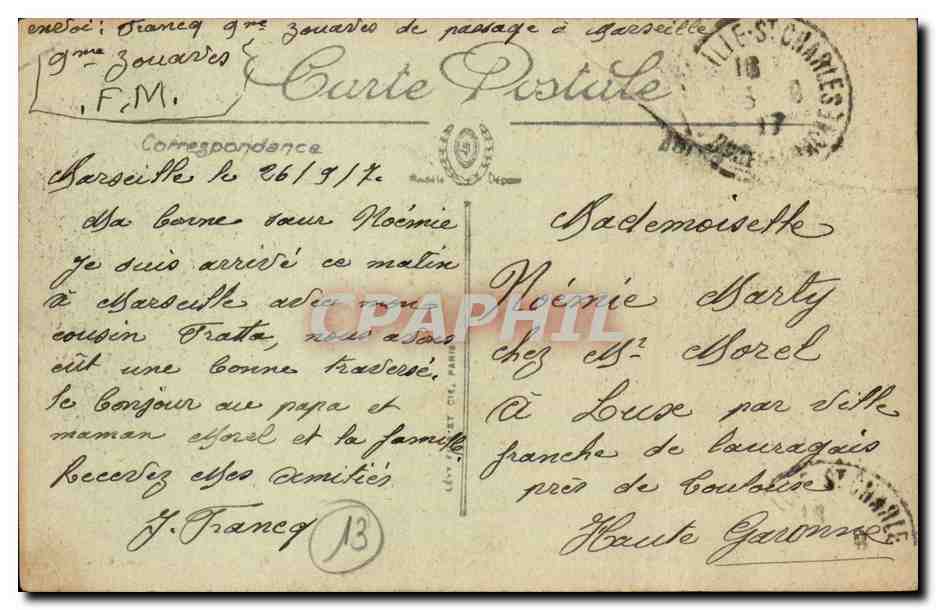 envoi: Francq 9me Zouaves de passage à Marseille
9me Zouaves
F.M.
Carte Postale
Correspondance
Marseille le 26/9/17.
Ma bonne sœur Noémie
je suis arrivé ce matin
à Marseille avec mon
cousin Fratta, nous avons
eût une bonne traversé.
le bonjour au papa et
maman Morel et la famille
Recevez Mes Amitiés
J. Francq
13
Mademoiselle
Noémie Marty
chez Mr Morel
à Lux par ville
franche de lauragais
près de Toulouse
Haute Garonne
ILLE-ST CHARLES
18
8
17
ST CHARLE
LÉVY ET CIE, PARIS
CPAPHIL